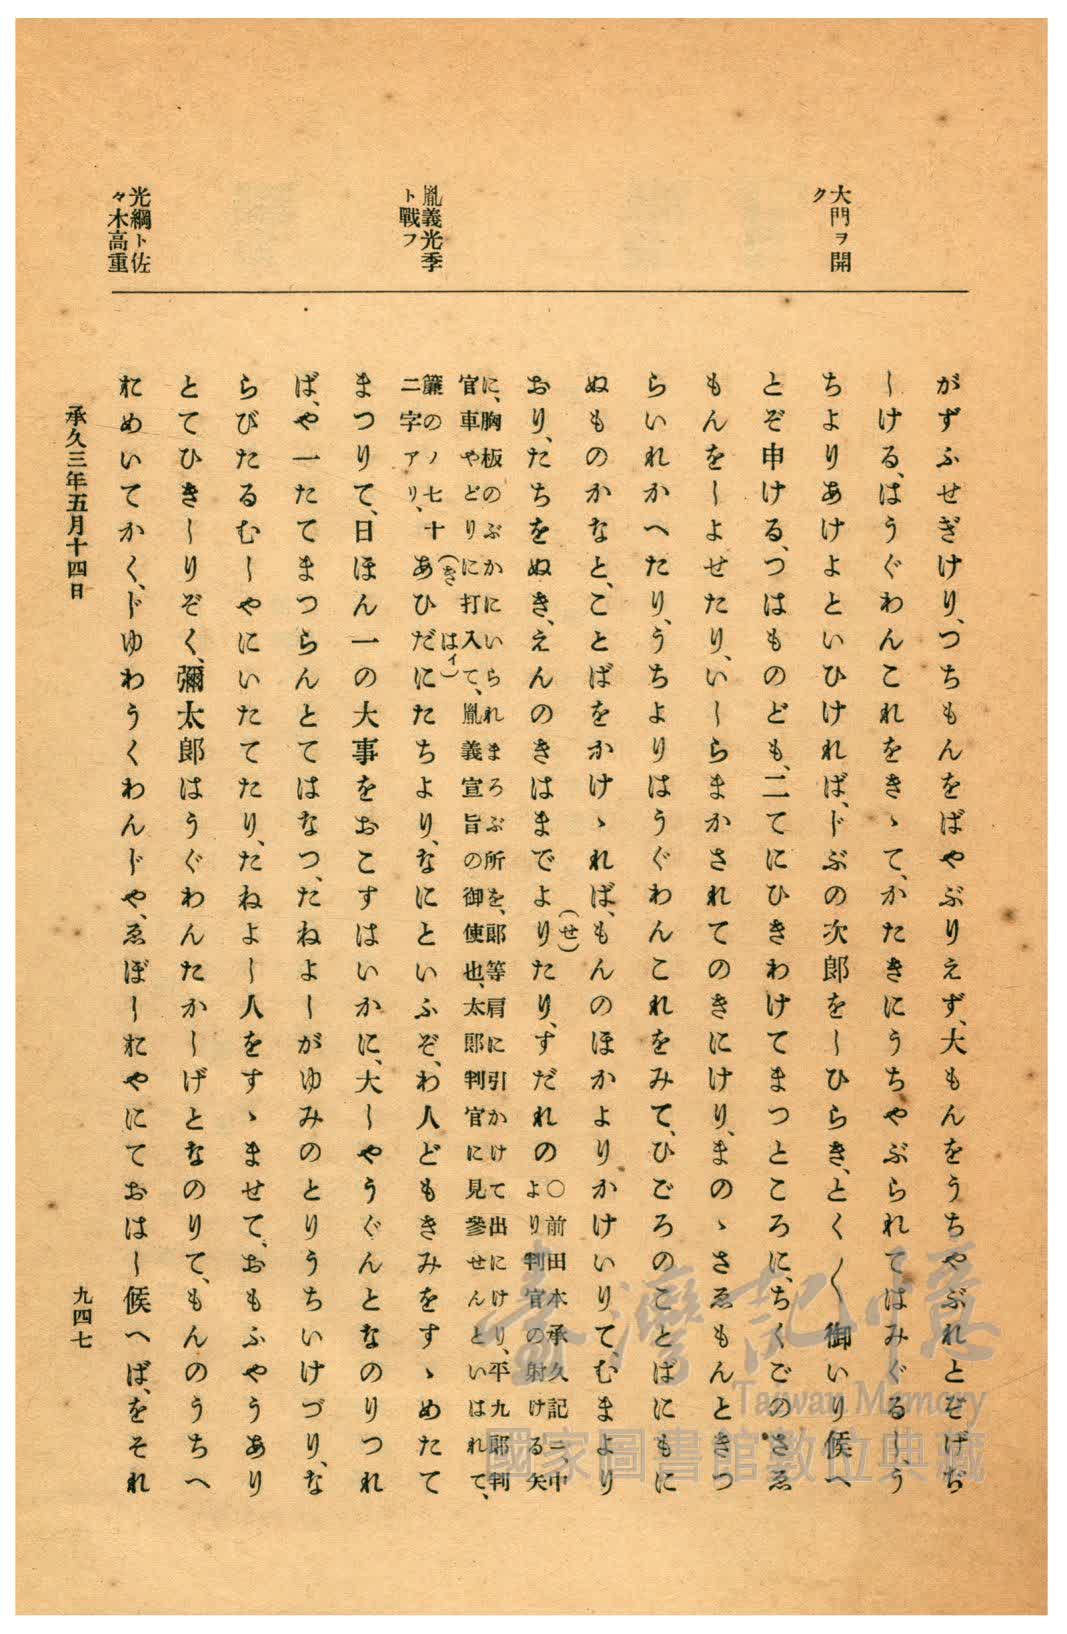 大門ヲ開
ク
胤義光季
ト戰フ
光綱ト佐
々木高重
がずふせぎけり、つちもんをばやぶりえず、大もんをうちやぶれとぞげぢ
しける、はうぐわんこれをきゝて、かたきにうちやぶられてはみぐるしう
ちよりあけよといひければ、ぢぶの次郎をしひらき、とく〳〵御いり候へ
とぞ申ける、つはものども、二てにひきわけてまつところに、ちくごのさゑ
もんをしよせたり、いしらまかされてのきにけり、まのゝさゑもんときつ
らいれかへたり、うちよりはうぐわんこれをみて、ひごろのことばにもに
ぬものかなと、ことばをかけゝれば、もんのほかよりかけいりて、むまより
おり、たちをぬき、えんのきはまでより(せ)たり、すだれの〇前田本承久記ニ、中
より判官の射ける矢
に、胸板のぶかにいられまろぶ所を、郞等肩に引かけて出にけり、平九郞判
官車やどりに打入て、胤義宣旨の御使也、太郞判官に見參せんといはれて、
簾のノ七十
二字アリ、あひ(きはイ)だにたちより、なにといふぞ、わ人どもきみをすゝめたて
まつりて、日ほん一の大事をおこすはいかに、大しやうぐんとなのりつれ
ば、や一たてまつらんとてはなつ、たねよしがゆみのとりうちいけづり、な
らびたるむしやにいたてたり、たねよし人をすゝませて、おもふやうあり
とてひきしりぞく、彌太郞はうぐわんたかしげとなのりて、もんのうちへ
おめいてかく、ぢゆわうくわんぢや、ゑぼしおやにておはし候へば、をそれ
承久三年五月十四日
九四七
臺灣記憶
Taiwan Memory
國家圖書館數位典藏